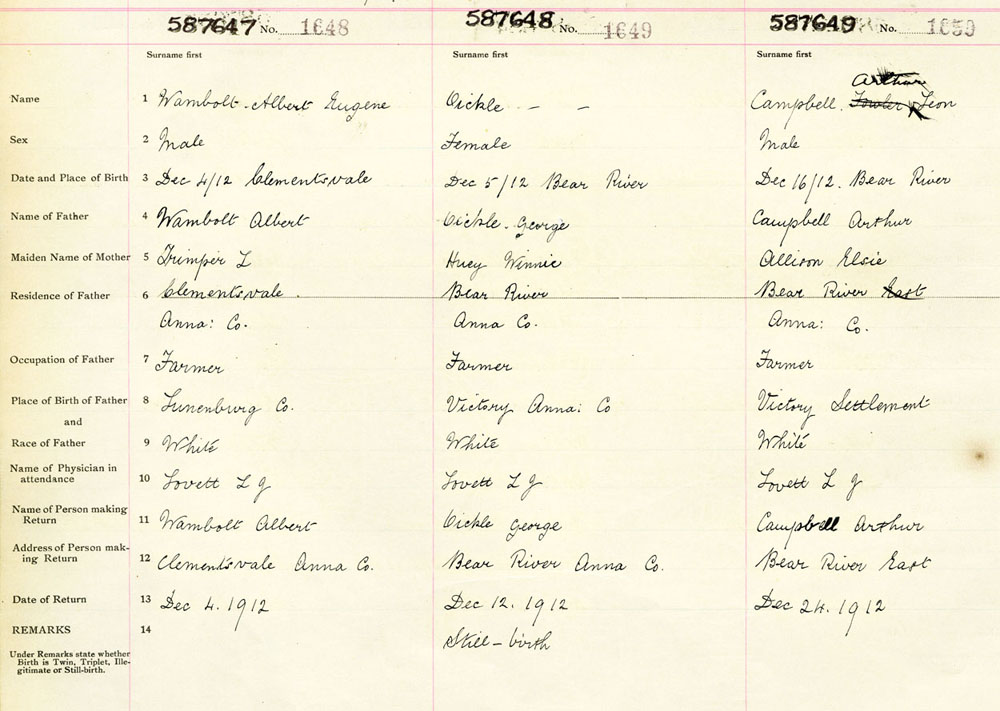 587647 No. 1648 587648 No. 1649 587649 No. 1650
Surname first Surname first Surname first
Arthur
Name 1 Wambolt Albert Eugene Oickle - - Campbell Fowler Leon
Sex 2 Male Female Male
Date and Place of Birth 3 Dec 4/12 Clementsvale Dec 5/12 Bear River Dec 16/12. Bear River
Name of Father 4 Wambolt Albert Oickle. George Campbell Arthur
Maiden Name of Mother 5 Trimper L Huey Winnie Allison Elsie
Residence of Father 6 Clementsvale Bear River Bear River East
Anna: Co. Anna Co. Anna: Co.
Occupation of Father 7 Farmer Farmer Farmer
Place of Birth of Father 8 Lunenburg Co. Victory Anna: Co Victory Settlement
and
Race of Father 9 White White White
Name of Physician in
attendance 10 Lovett L J Lovett L J Lovett L J
Name of Person making
Return 11 Wambolt Albert Oickle George Campbell Arthur
Address of Person mak-
ing Return 12 Clementsvale Anna Co. Bear River Anna Co. Bear River East
Date of Return 13 Dec 4. 1912 Dec 12. 1912 Dec 24. 1912
REMARKS 14 Still-birth
Under Remarks state whether
Birth is Twin, Triplet, Ille-
gitimate or Still-birth.